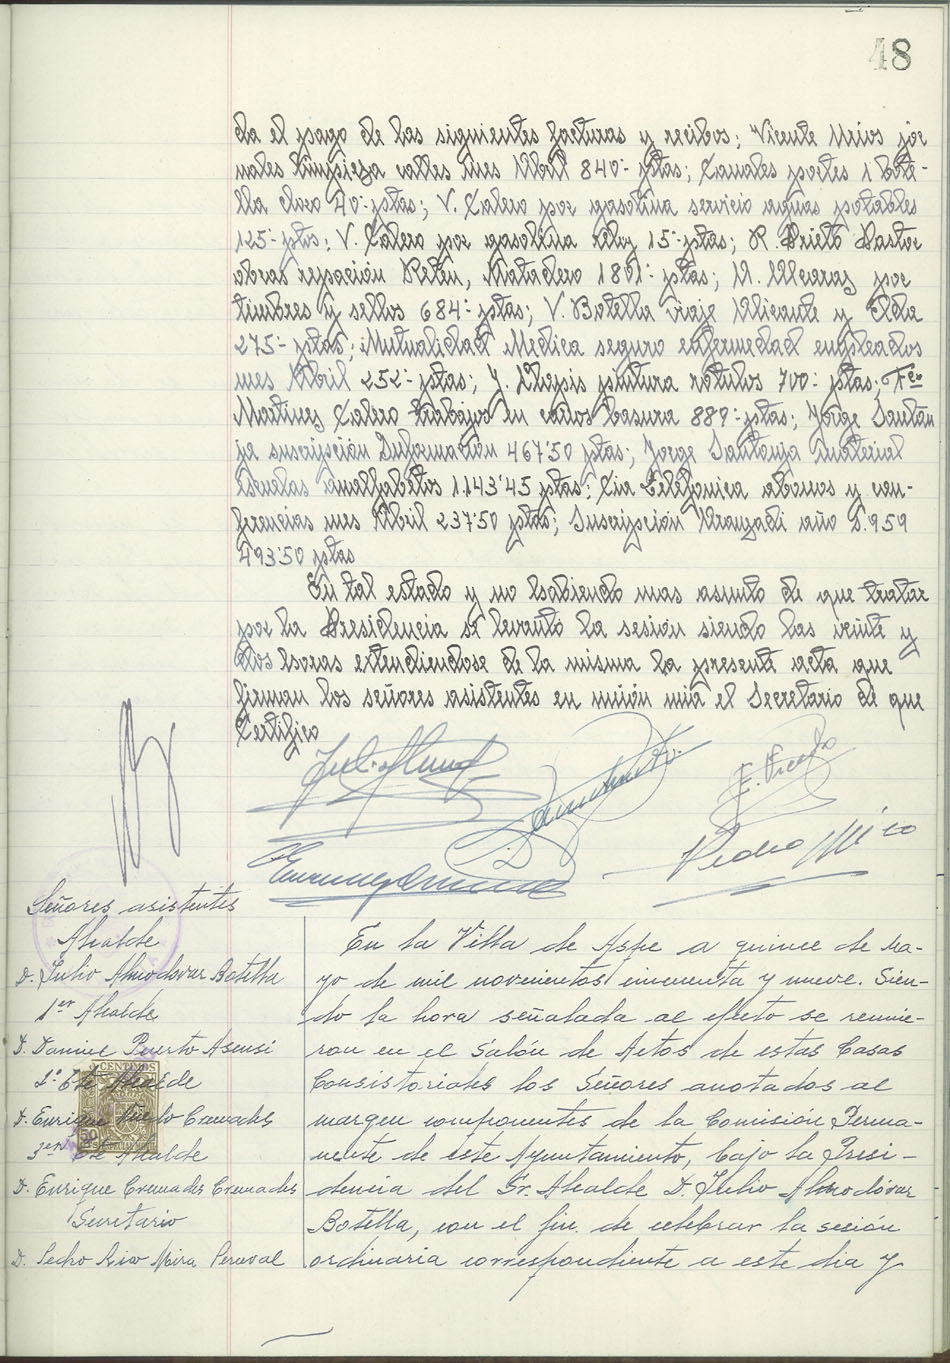 48
da el pago de las siguientes facturas y recibos; Vicente Urios jor
nales limpieza calles mes Abril 840'- ptas; Canales portes 1 bote-
lla cloro 40'- ptas; V. Calero por gasolina servicio aguas potables
125'- ptas; V. Calero por gasolina reloj 15'- ptas; R. Prieto Pastor
obras repación Retén, Matadero 1801'- ptas; A. Alcaraz por
timbres y sellos 684'- ptas; V. Botella viaje Alicante y Elda
275'- ptas; Mutualidad Medica seguro enfermedad empleados
mes Abril 252'- ptas; J. Llopis pintura rotulos 700'- ptas; Fco
Martinez Calero trabajos en carros basura 889'- ptas; Jorge Santan
ja suscripción Información 467'50 ptas; Jorge Santanja material
Escuelas analfabetos 1.143'45 ptas; Cia Telefonica abonos y con-
ferencias mes Abril 237'50 ptas; Suscripcion Aranzadi año 1.959
493'50 ptas
En tal estado y no habiendo mas asunto de que tratar
por la Presidencia se levantó la sesión siendo las veinte y
dos horas extendiendose de la misma la presente acta que
firman los señores asistentes en unión mia el Secretario de que
Certifico
E. Pucedo
Pedro Micó
Señores asistentes
Alcalde
D. Julio Almodóvar Botella
1er Alcalde
D. Daniel Puerto Asensi
2º Tte Alcalde
D. Enrique Cremades
3er Tte Alcalde
D. Enrique Cremades Cremades
Secretario
D. Pedro Mira
CENTIMOS
50
En la Villa de Aspe a quince de Ma-
yo de mil novecientos cincuenta y nueve. Sien-
do la hora señalada al efecto se reunie-
ron en el Salón de Actos de estas Casas
Consistoriales los Señores anotados al
margen componentes de la Comisión Perma-
nente de este Ayuntamiento, bajo la Presi-
dencia del Sr. Alcalde D. Julio Almodóvar
Botella, con el fin de celebrar la sesión
ordinaria correspondiente a este dia y